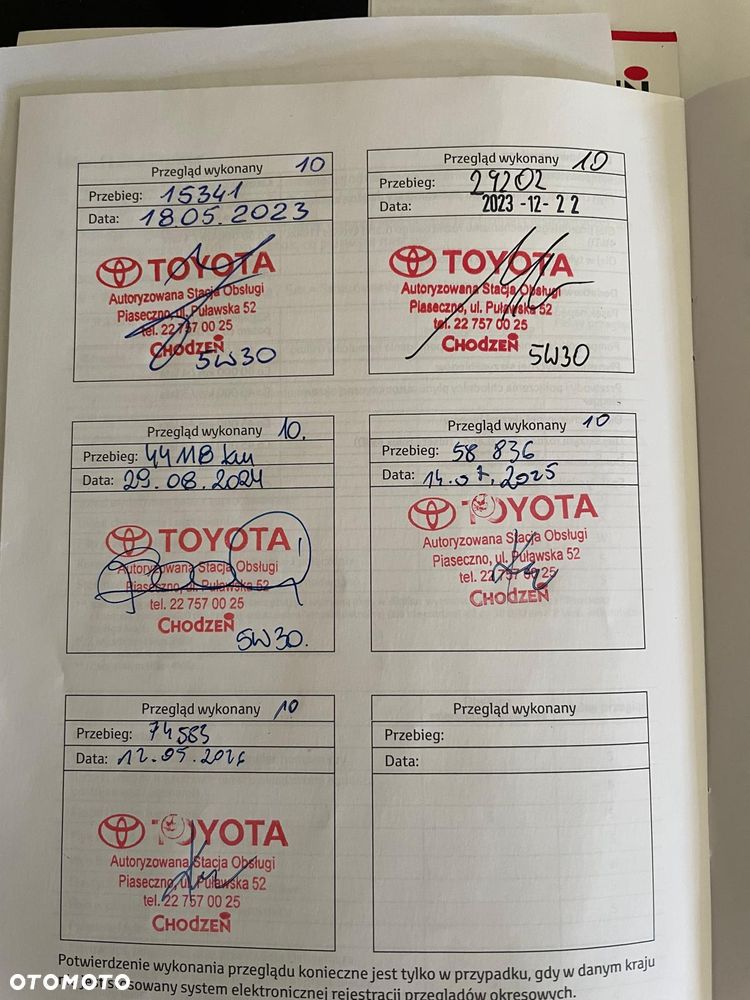 Przegląd wykonany 10
Przebieg: 15341
Data: 18.05.2023
TOYOTA
Autoryzowana Stacja Obsługi
Piaseczno, ul. Puławska 52
tel. 22 757 00 25
CHODZEŃ
5W30
Przegląd wykonany 10
Przebieg: 29202
Data: 2023-12-22
TOYOTA
Autoryzowana Stacja Obsługi
Piaseczno, ul. Puławska 52
tel. 22 757 00 25
CHODZEŃ
5W30
Przegląd wykonany 10.
Przebieg: 44118 km
Data: 29.08.2024
TOYOTA
Autoryzowana Stacja Obsługi
Piaseczno, ul. Puławska 52
tel. 22 757 00 25
CHODZEŃ
5W30.
Przegląd wykonany 10
Przebieg: 58 836
Data: 14.07.2025
TOYOTA
Autoryzowana Stacja Obsługi
Piaseczno, ul. Puławska 52
tel. 22 757 00 25
CHODZEŃ
Przegląd wykonany 10
Przebieg: 74583
Data: 12.05.2026
TOYOTA
Autoryzowana Stacja Obsługi
Piaseczno, ul. Puławska 52
tel. 22 757 00 25
CHODZEŃ
Przegląd wykonany
Przebieg:
Data:
Potwierdzenie wykonania przeglądu konieczne jest tylko w przypadku, gdy w danym kraju
nie jest stosowany system elektronicznej rejestracji przeglądów okresowych.
OTOMOTO